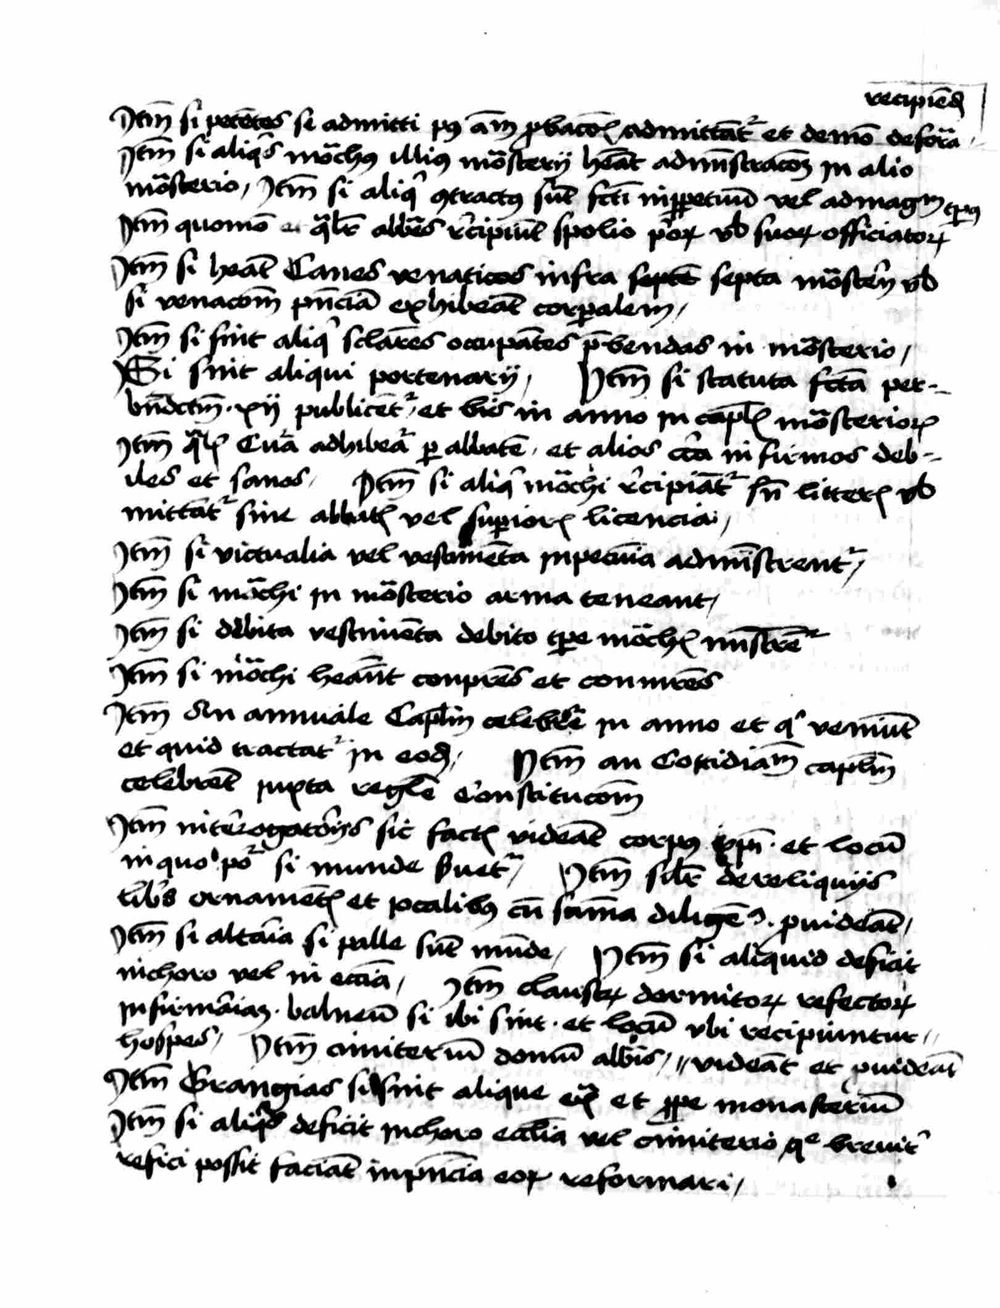 recipiend
Itm si petetes se admitti p9 am pbacoe admittat et de mo
Itm si aliqs moch9 illi9 mosterij heat admistracoz in alio
mosterio, Itm si aliq 9tract9 sut fcti inppetuu vel ad magm tps
Itm quomo et qlr abbes recipiut spolio por vl suor officiator
Itm si heat Canes venaticos infra septe septa mosterij vl
si venacom pnciā exhibeat corpalem,
Itm si sint aliq sclares occupates pbendas in mosterio,
Si sint aliqui portenarij, Itm si statuta fcta per
bndctm xij publicet et bis in anno in caplis mosterior
Itm qlis Cura adhibeat p abbate et alios cca infirmos deb-
iles et sanos, Itm si aliq mochi recipiat sn litteris vl
mittat sine abbatis vel superioris licencia,
Itm si victualia vel vestimeta in pecuia admistrent,
Itm si mochi in mosterio arma teneant,
Itm si debita vestimeta debito tpe mochis mistre
Itm si mochi heant conpres et conmres
Itm An annuale Caplm celebre in anno et q veniut
et quid tractat in eod, Itm an Cottidiam caplm
celebret juxta regle Constitucom
Itm interogatorijs sic factis videat corpus xpi et locu
in quo por si munde svet, Itm silr de reliquijs
libris ornametis et calicib9 cu sama diligē pvideat,
Itm si altaria si palle sut mude, Itm si aliquid deficit
in choro vel in eccia, Itm claustr dormitor refector
infirmarias balneu si ibi sint et locu vbi recipiuntur
hospes, Itm cimiteriu domu abbis, videat et pvideat
Itm Grangias si sint alique ext et ppe monasteriu
Itm si aliqd deficit in choro ecclia vel cimiterio q brevit
refici possit faciat in pncia eor reformari,